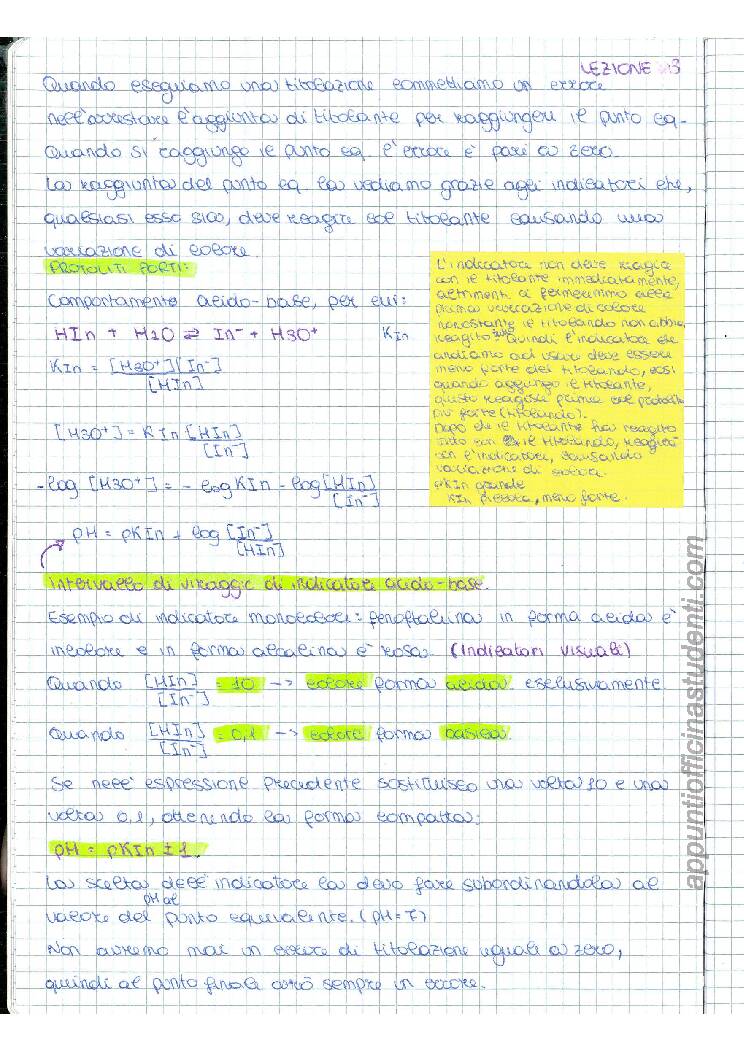 LEZIONE 13
Quando eseguiamo una titolazione commettiamo un errore
nell'arrestare l'aggiunta di titolante per raggiungere il punto eq.
Quando si raggiunge il punto eq. l'errore è pari a zero.
La raggiunta del punto eq. la vediamo grazie agli indicatori che,
qualsiasi esso sia, deve reagire col titolante causando una
variazione di colore.
PROTOLITI FORTI:
Comportamento acido-base, per cui:
HIn + H2O ⇌ In⁻ + H3O⁺ KIn
KIn = [H3O⁺][In⁻]
[HIn]
[H3O⁺] = KIn [HIn]
[In⁻]
-log [H3O⁺] = - log KIn - log [HIn]
[In⁻]
pH = pKIn + log [In⁻]
[HIn]
L'indicatore non deve reagire
con il titolante immediatamente,
altrimenti ci fermeremmo alla
prima variazione di colore
nonostante il titolando non abbia
reagito tutto. Quindi l'indicatore che
andiamo ad usare deve essere
meno forte del titolando, così
quando aggiungo il titolante,
questo reagisce prima col protolita
più forte (titolando).
Dopo che il titolante ha reagito
tutto con il titolando, reagirà
con l'indicatore, causando
variazione di colore.
pKIn grande
KIn piccola, meno forte.
Intervallo di viraggio di indicatori acido-base.
Esempio di indicatore monocolore: fenoftaleina in forma acida è
incolore e in forma alcalina è rosa. (Indicatori visuali)
Quando [HIn] = 10 -> colore forma acida esclusivamente.
[In⁻]
Quando [HIn] = 0,1 -> colore forma basica.
[In⁻]
Se nell'espressione precedente sostituisco una volta 10 e una
volta 0,1, ottenendo la forma compatta:
pH = pKIn ± 1.
La scelta dell'indicatore la devo fare subordinandola al
pH al
valore del punto equivalente. (pH=7)
Non avremo mai un errore di titolazione uguale a zero,
quindi al punto finale avrò sempre un errore.
appuntiofficinastudenti.com